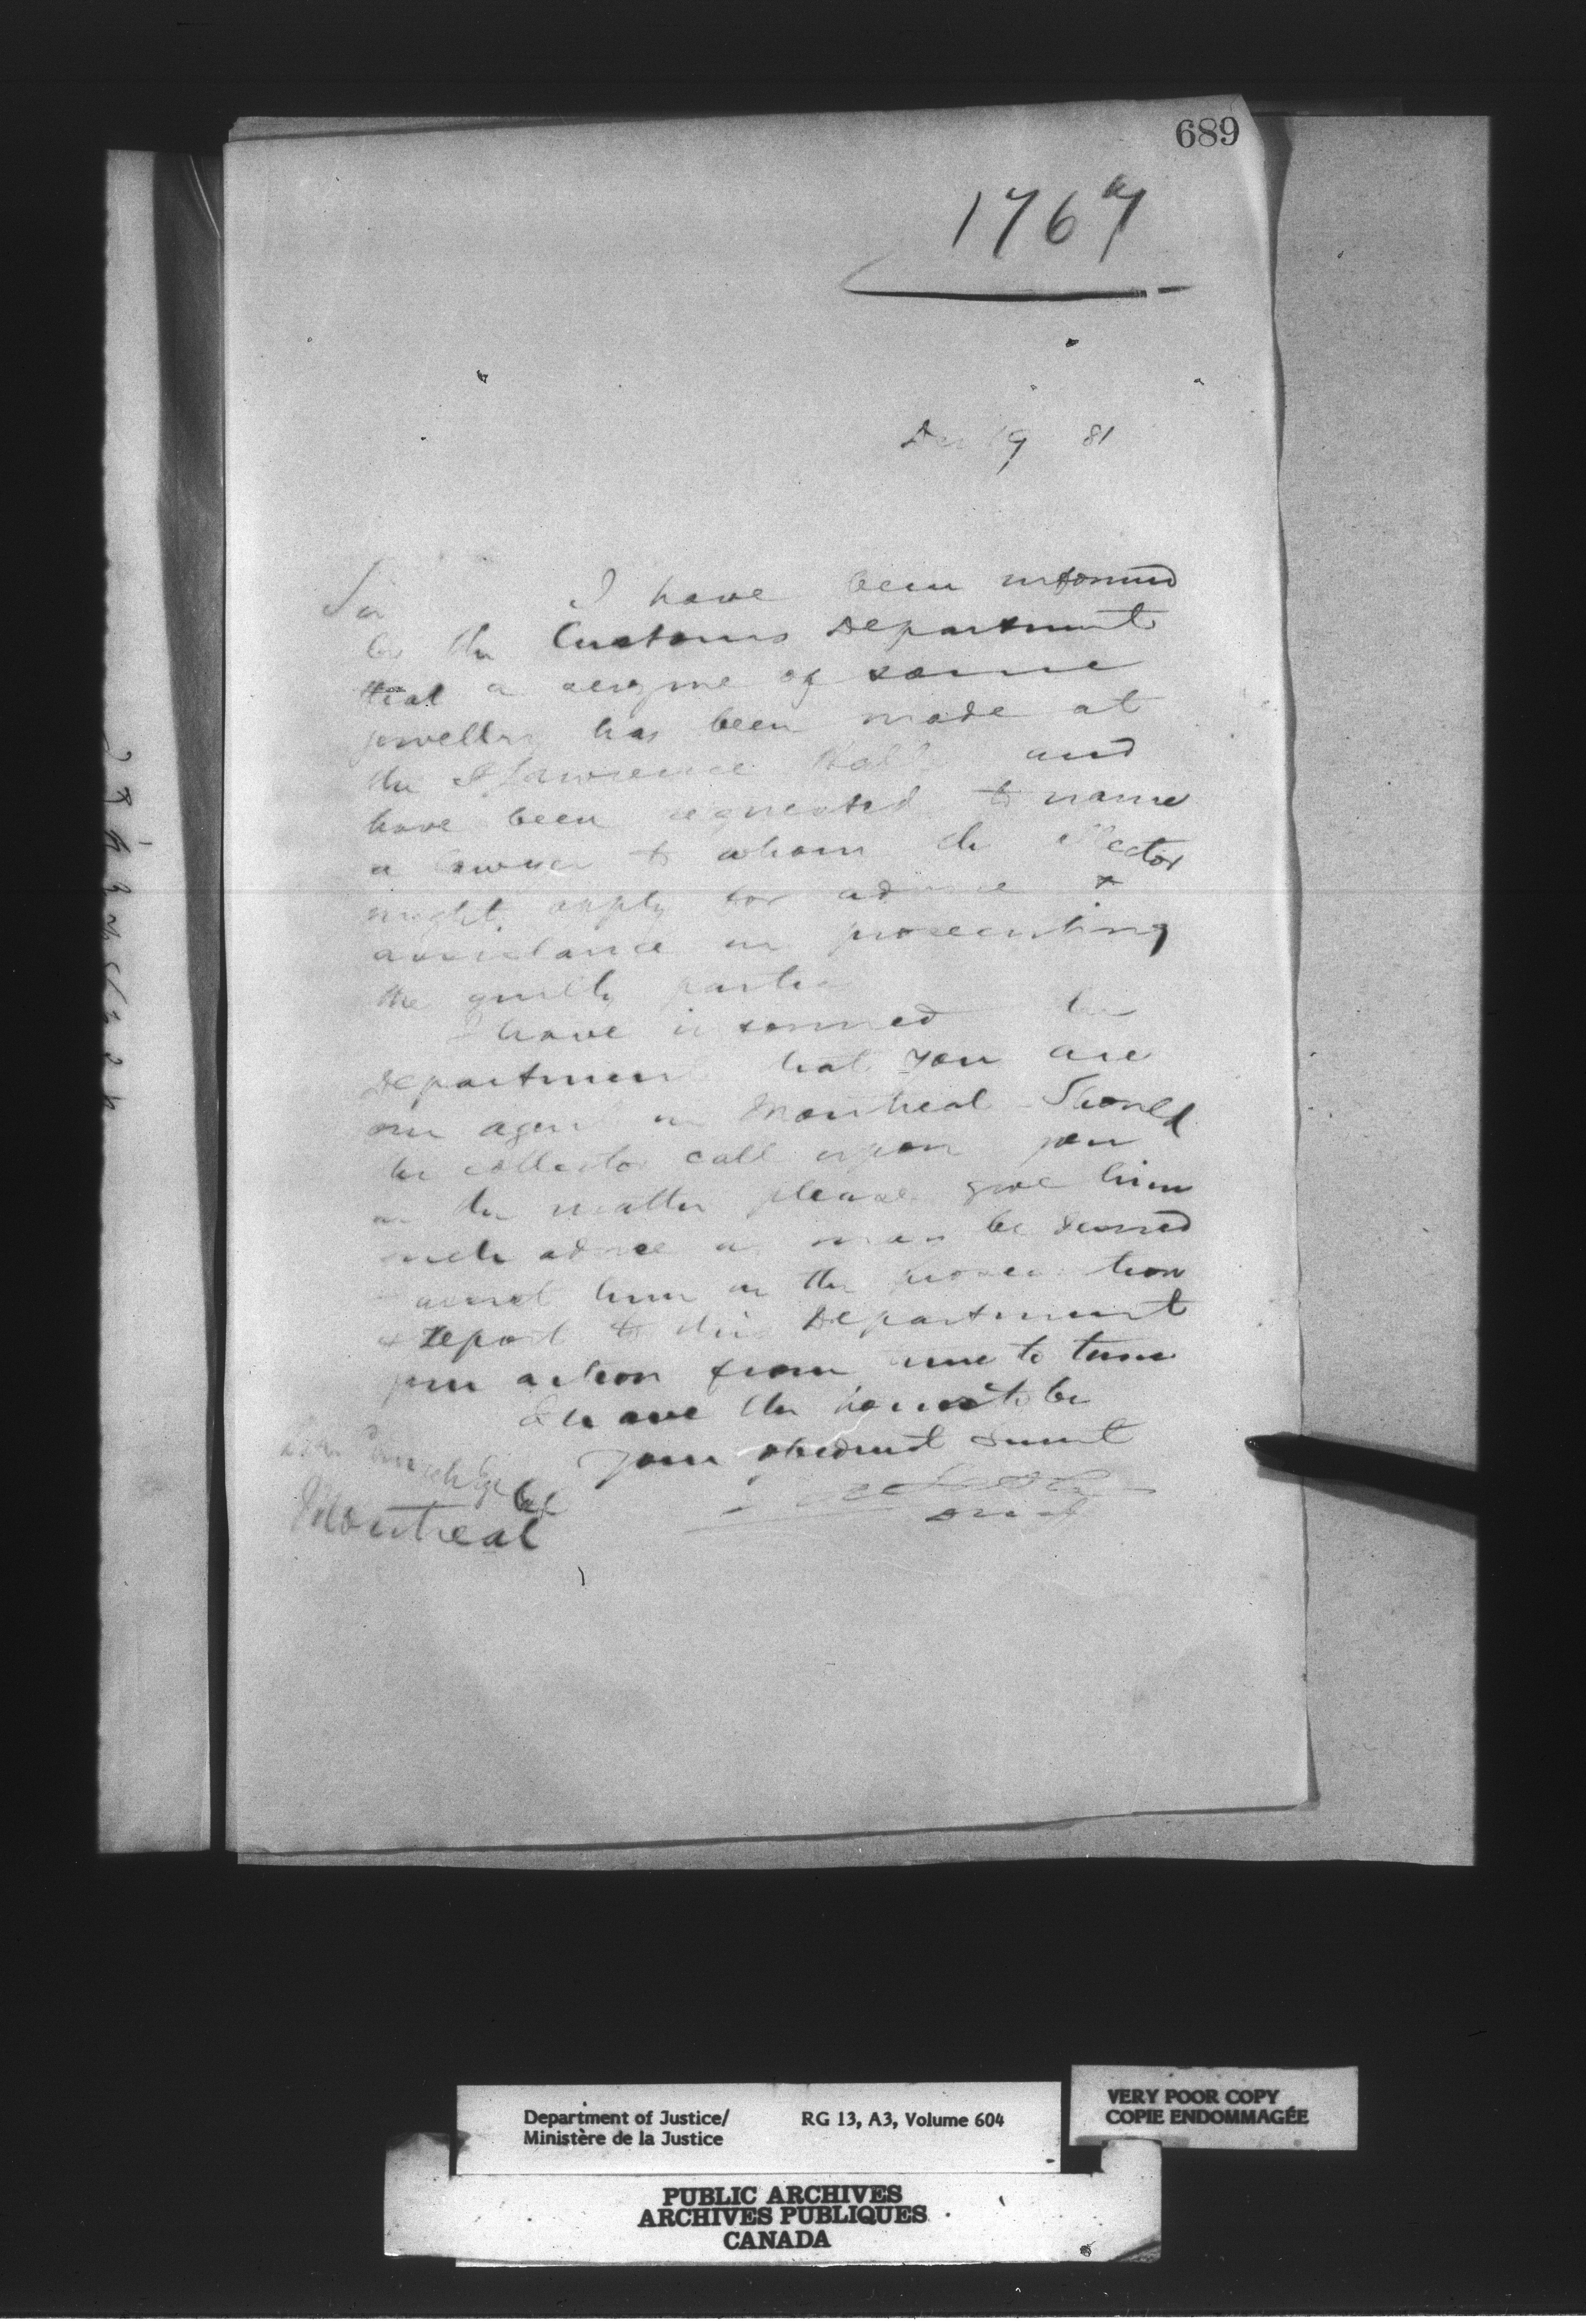 689
1767
Dec 19 81
Sir I have been informed
by the Customs Department
that a seizure of some
jewellry has been made at
the St Lawrence Hall and
have been requested to name
a lawyer to whom the collector
might apply for advice &
assistance in prosecuting
the guilty parties
I have informed the
Department that you are
our agent in Montreal Should
the collector call upon you
in the matter please give him
such advice as may be desired
assist him in the prosecution
& report to this Department
your action from time to time
I have the honor to be
Your obedient servant
Montreal
Department of Justice/
Ministère de la Justice
RG 13, A3, Volume 604
VERY POOR COPY
COPIE ENDOMMAGÉE
PUBLIC ARCHIVES
ARCHIVES PUBLIQUES
CANADA